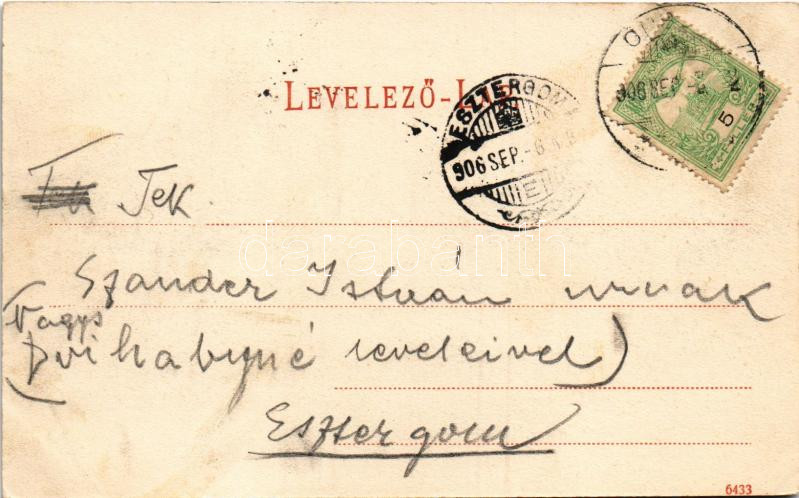 LEVELEZŐ-LAP
ESZTERGOM
906 SEP. -6
906 SEP. -6
5
FILLÉR
Tek.
Szander István urnak
(Nagys
levéleivel)
Esztergom
databanth
6433